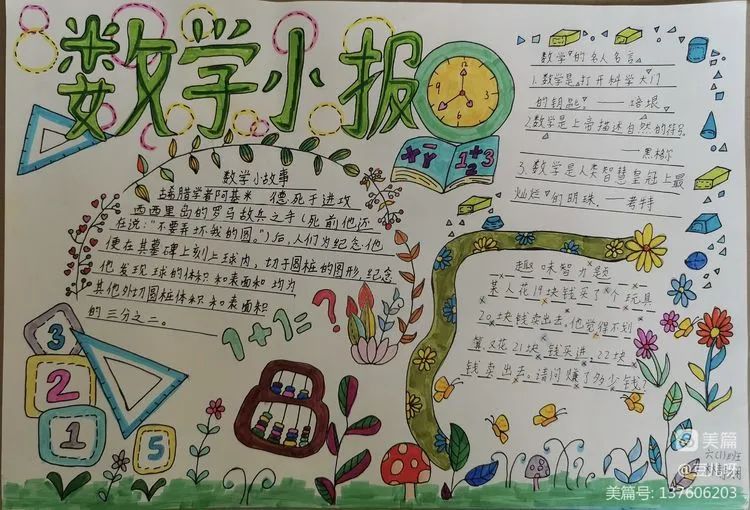 数学小报
12
3
6
9
x÷y-
1+3
2
数学小故事
古希腊学者阿基米德死于进攻
西西里岛的罗马敌兵之手(死前他还
在说:“不要弄坏我的圆。”)后,人们为纪念他
便在其墓碑上刻上球内,切于圆桩的图形,纪念
他发现球的体积和表面和均为
其他外切圆桩体积和表面积
的三分之二。
1+1=?
3
2
1
5
数学的名人名言
1.数学是打开科学大门
的钥匙。——培垠
2.数学是上帝描述自然的符号
——黑格尔
3.数学是人类智慧皇冠上最
灿烂的明珠.——考特
趣味智力题
某人花19块钱买了个玩具
20块钱卖出去。他觉得不划
算又花21块钱买进,22块
钱卖出去。请问赚了多少钱?
六(1)班
美篇
美篇号:137606203